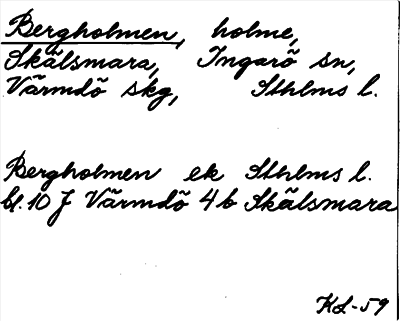 Bergholmen, holme,
Skälsmara, Ingarö sn,
Värmdö skg, Sthlms l.
Bergholmen ek Sthlms l.
bl. 10 J Värmdö 4 b Skälsmara
KL-59